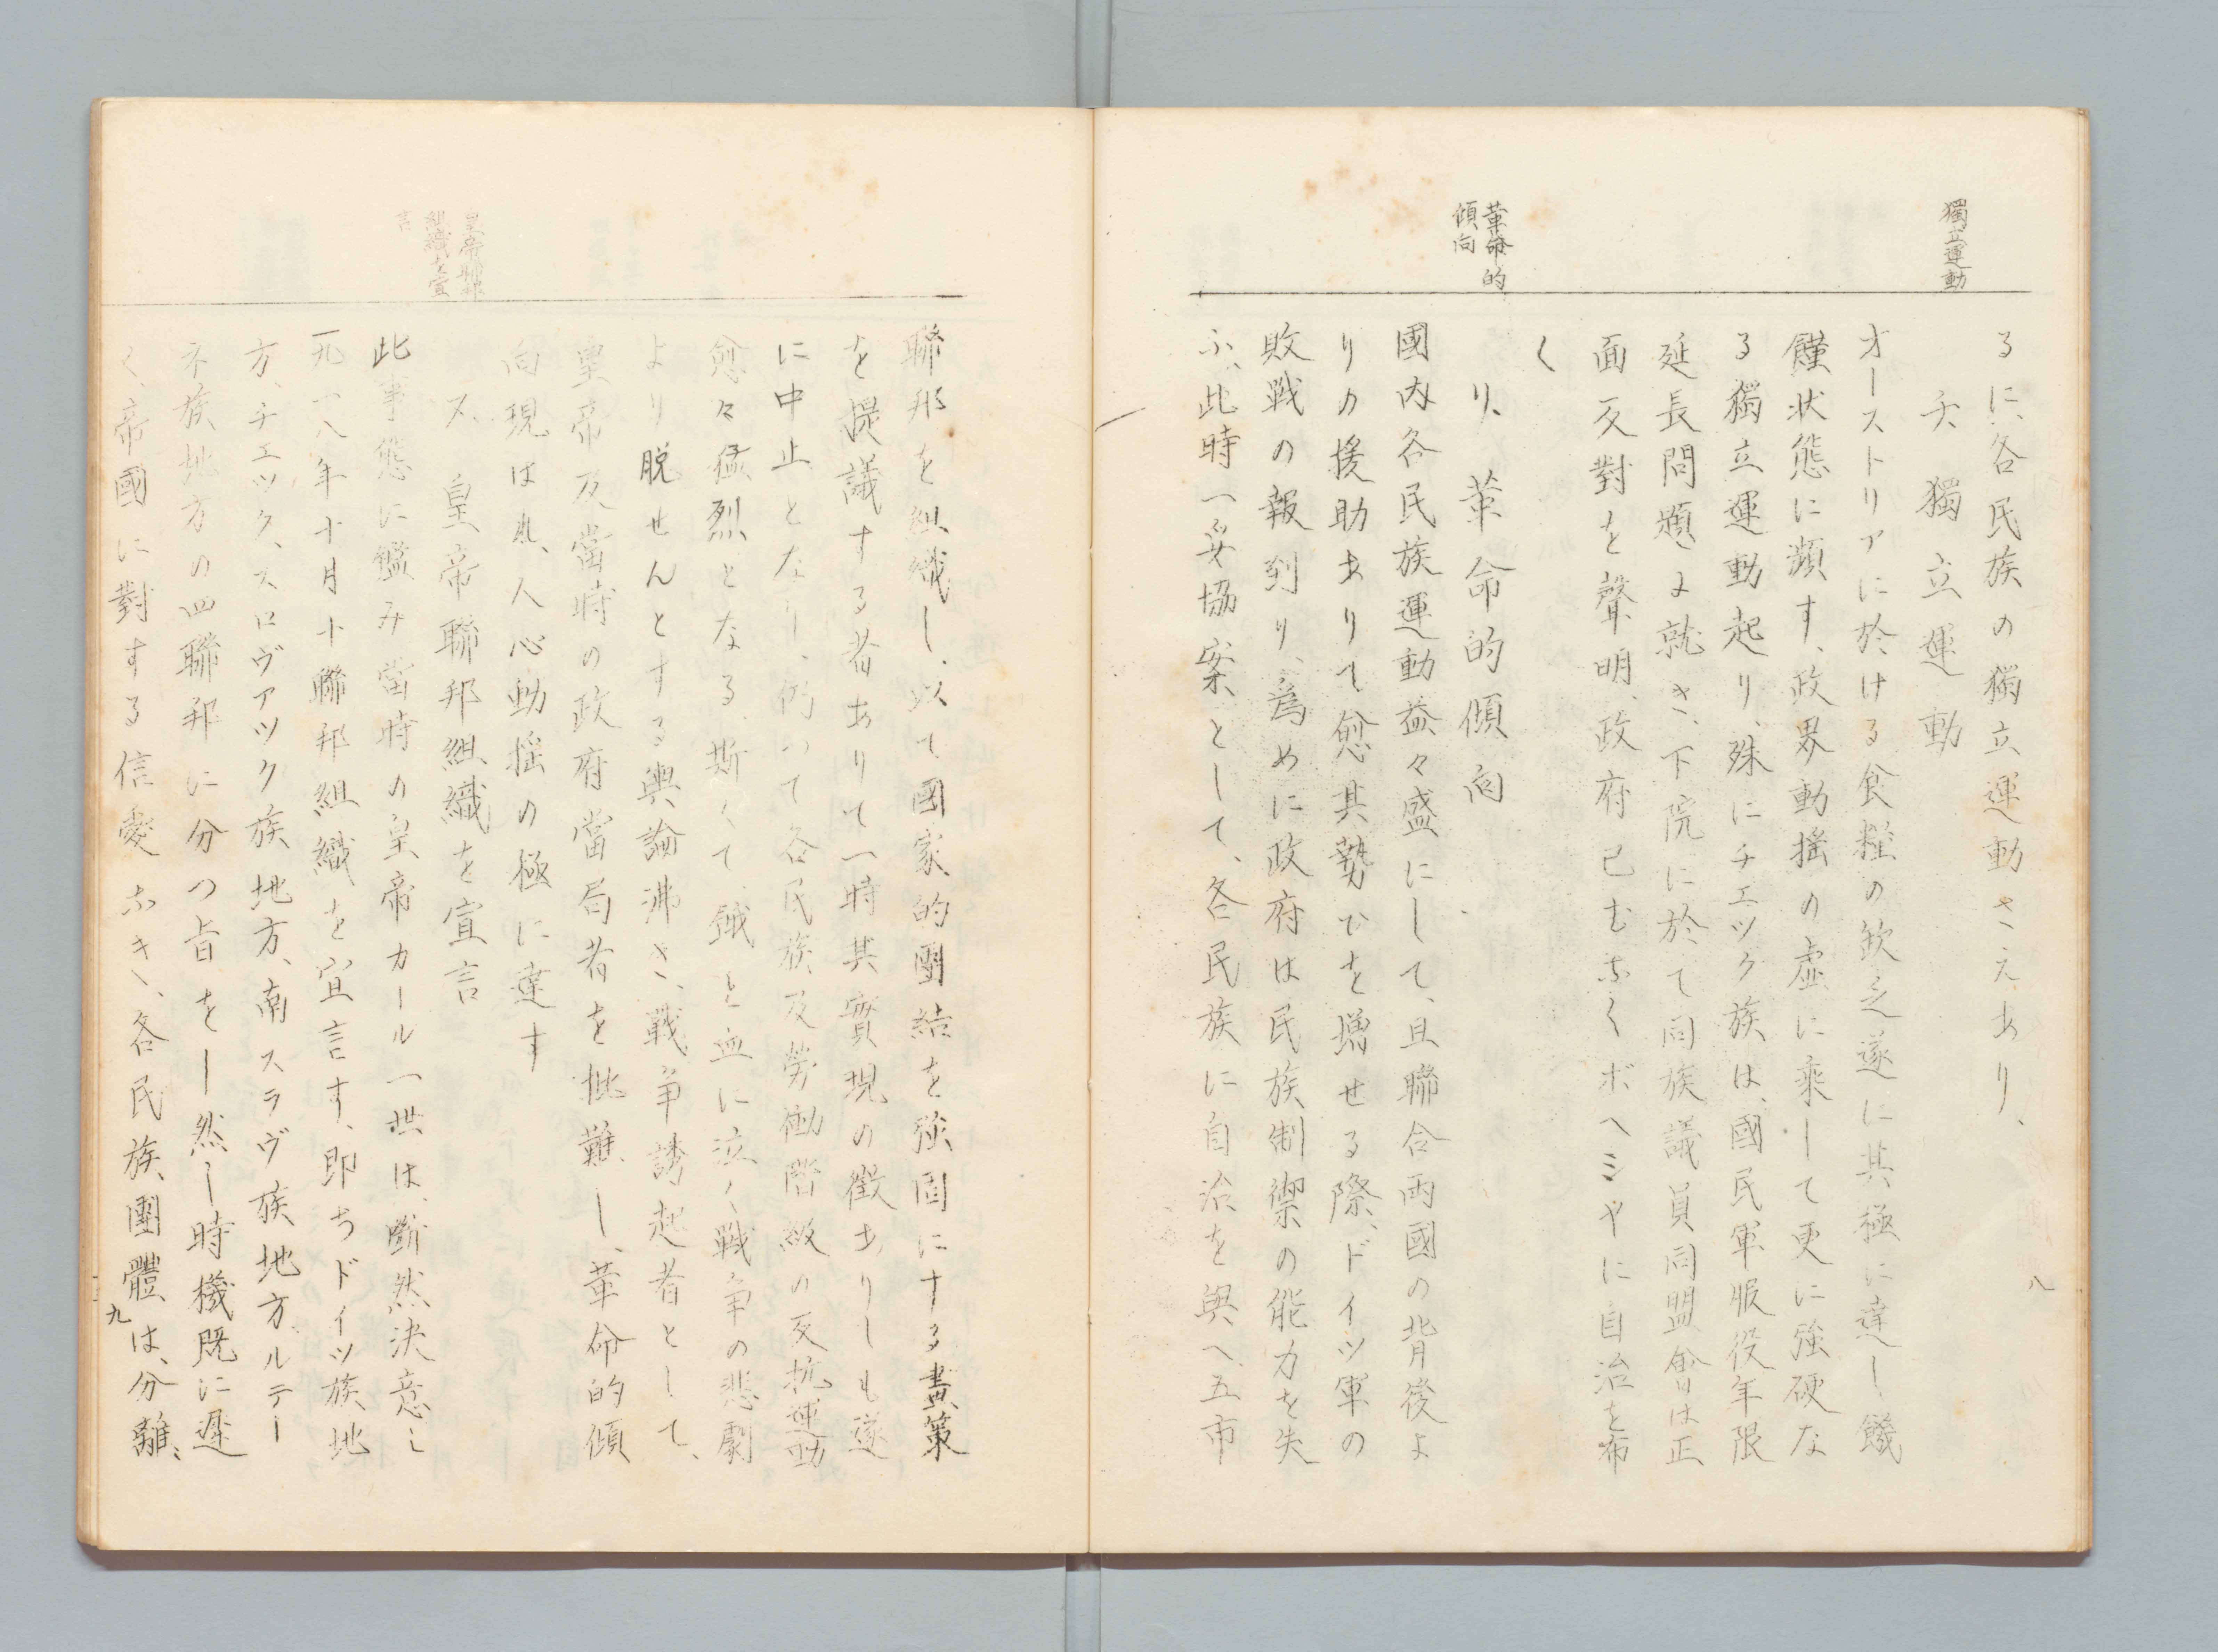 獨立運動
革命的
傾向
八
るに、各民族の獨立運動さえあり、
チ、獨立運動
オーストリアに於ける食糧の欽乏遂に其極に達し饑
饉状態に瀕す、政界動揺の虚に乘して更に強硬な
る獨立運動起り、殊にチエツク族は、國民軍服役年限
延長問題に就き、下院に於て同族議員同盟會は正
面反對を聲明、政府已むなくボヘミヤに自治を布
く
リ、革命的傾向
國内各民族運動益々盛にして、且聯合両國の背後よ
りの援助ありて愈其勢ひを増せる際、ドイツ軍の
敗戦の報到り、為めに政府は民族制禦の能力を失
ふ、此時一妥協案として、各民族に自治を與へ、五市
皇帝聯邦
組織を宣
言
聯邦を組織し、以て國家的團結を強固にする畫策
を提議する者ありて一時其實現の徴ありしも遂
に中止となり、仍つて各民族及勞働階級の反抗運動
愈々猛烈となる、斯くて、鐡と血に泣く戦争の悲劇
より脱せんとする輿論沸き、戰争誘起者として、
皇帝及當時の政府當局者を批難し、革命的傾
向現はれ、人心動揺の極に達す
ヌ、皇帝聯邦組織を宣言
此事態に鑑み當時の皇帝カール一世は、斷然決意し
一九一八年十月十聯邦組織を宣言す、即ちドイツ族地
方、チエツク、スロヴアツク族地方、南スラヴ族地方、ルテー
ネ族地方の四聯邦に分つ旨をー然し時機既に遲
く、帝國に對する信愛なき、各民族、團體は、分離、
九